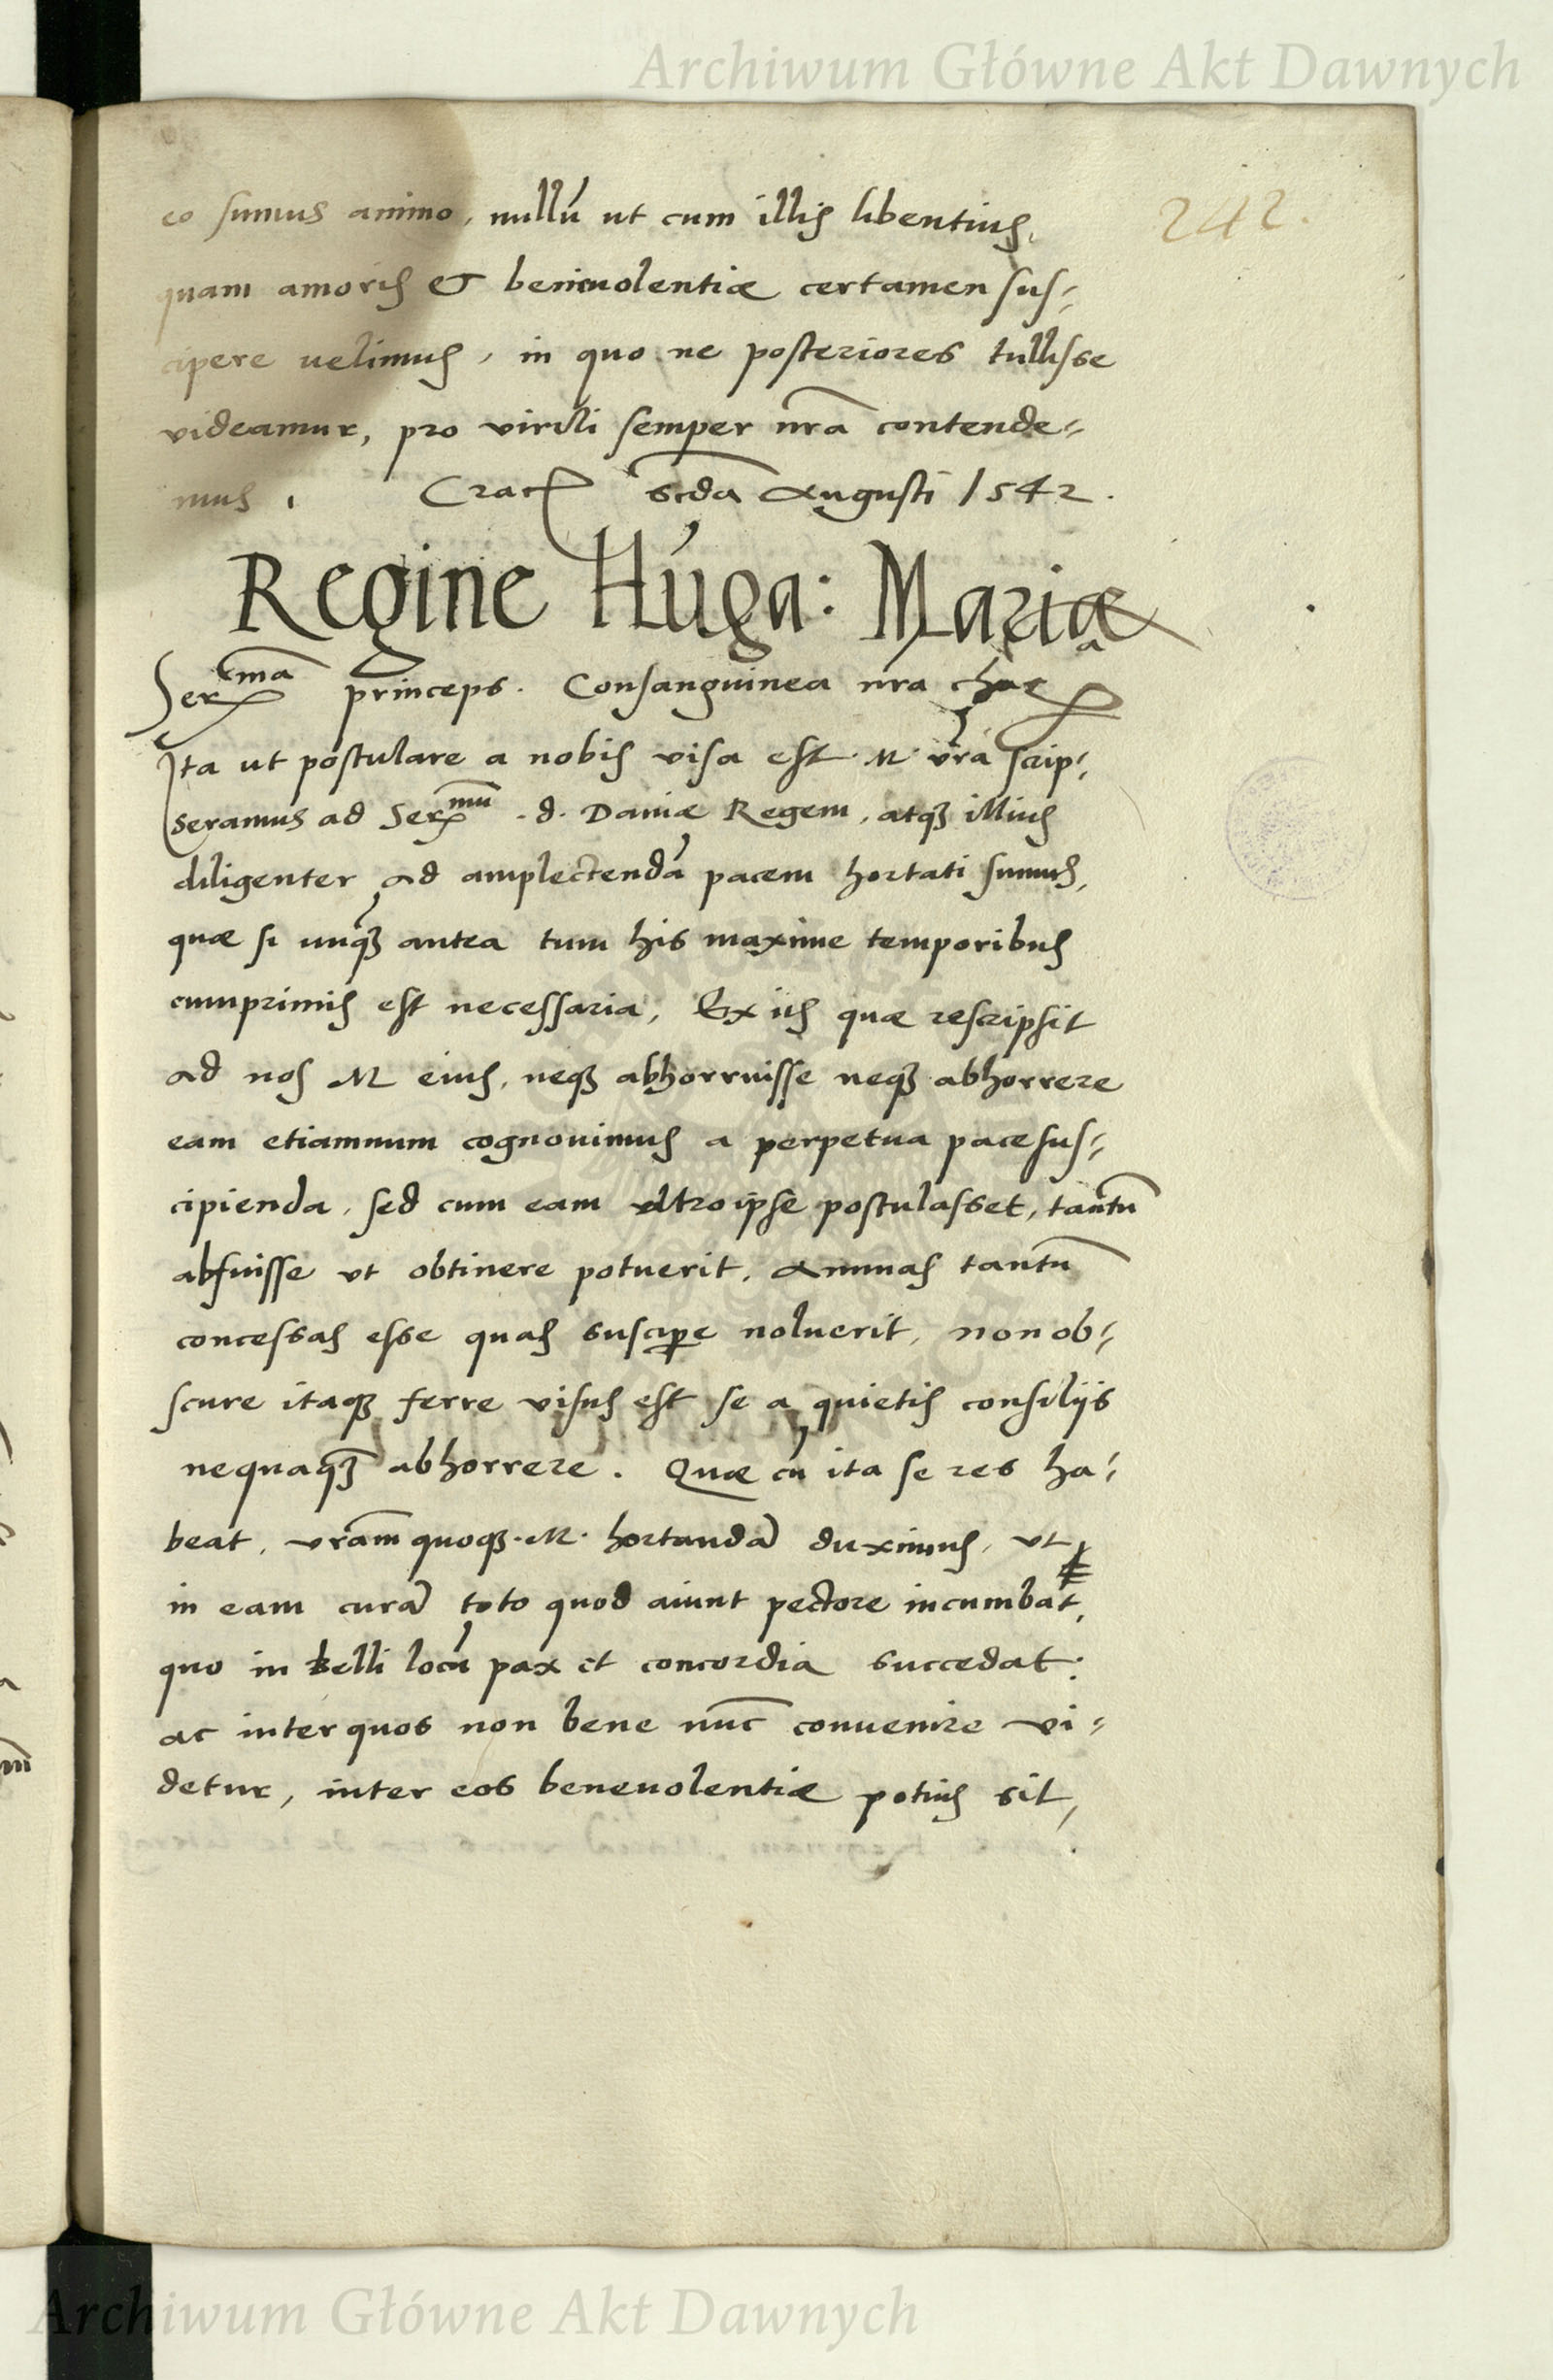 Archiwum Główne Akt Dawnych
242.
eo sumus animo, nullū ut cum illis libentius,
quam amoris & beneuolentiæ certamen sus-
cipere uelimus, in quo ne posteriores tullisse
videamur, pro virili semper nrā contende-
mus. Crac scdā Augusti 1542.
Regine Hūga: Mariæ
Serma princeps. Consanguinea nra char
Ita ut postulare a nobis visa est .M. vrā scrip-
seramus ad Sermū .d. Daniæ Regem, atqꝫ illius
diligenter ad amplectendā pacem hortati sumus,
quæ si unq̄ꝫ antea tum his maxime temporibus
cumprimis est necessaria, Ex iis quæ rescripsit
ad nos M eius, neqꝫ abhorruisse neqꝫ abhorrere
eam etiamnum cognouimus a perpetua pace sus-
cipienda, sed cum eam ultro ipse postulasset, tantū
abfuisse ut obtinere potuerit, Annuas tantū
concessas esse quas suscipꝑe noluerit, non ob-
scure itaqꝫ ferre visus est se a quietis consilijs
nequaq̄ꝫ abhorrere. Quæ cū ita se res ha-
beat, vrām quoqꝫ .M. hortandā duximus, ut
in eam curā toto quod aiunt pectore incumbat,
quo in belli locū pax et concordia succedat:
ac inter quos non bene nūc conuenire vi-
detur, inter eos beneuolentiæ potius sit,
Archiwum Główne Akt Dawnych